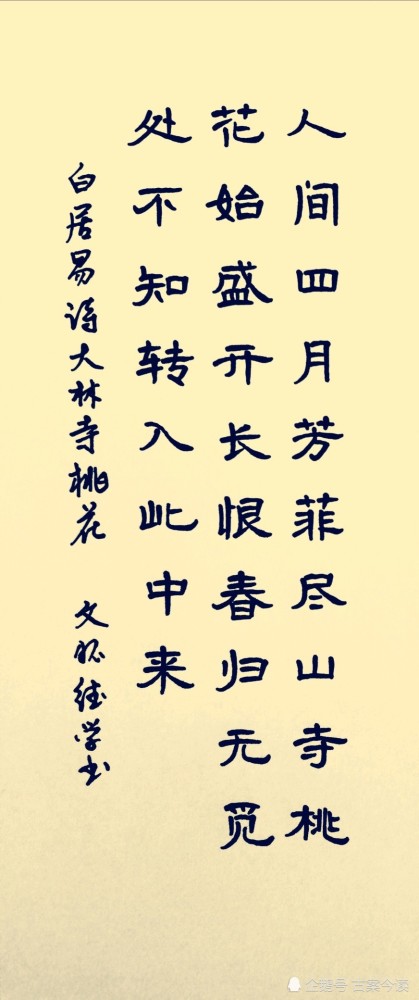 人间四月芳菲尽山寺桃
花始盛开长恨春归无觅
处不知转入此中来
白居易诗大林寺桃花 文 学书
企鹅号 古案今谈